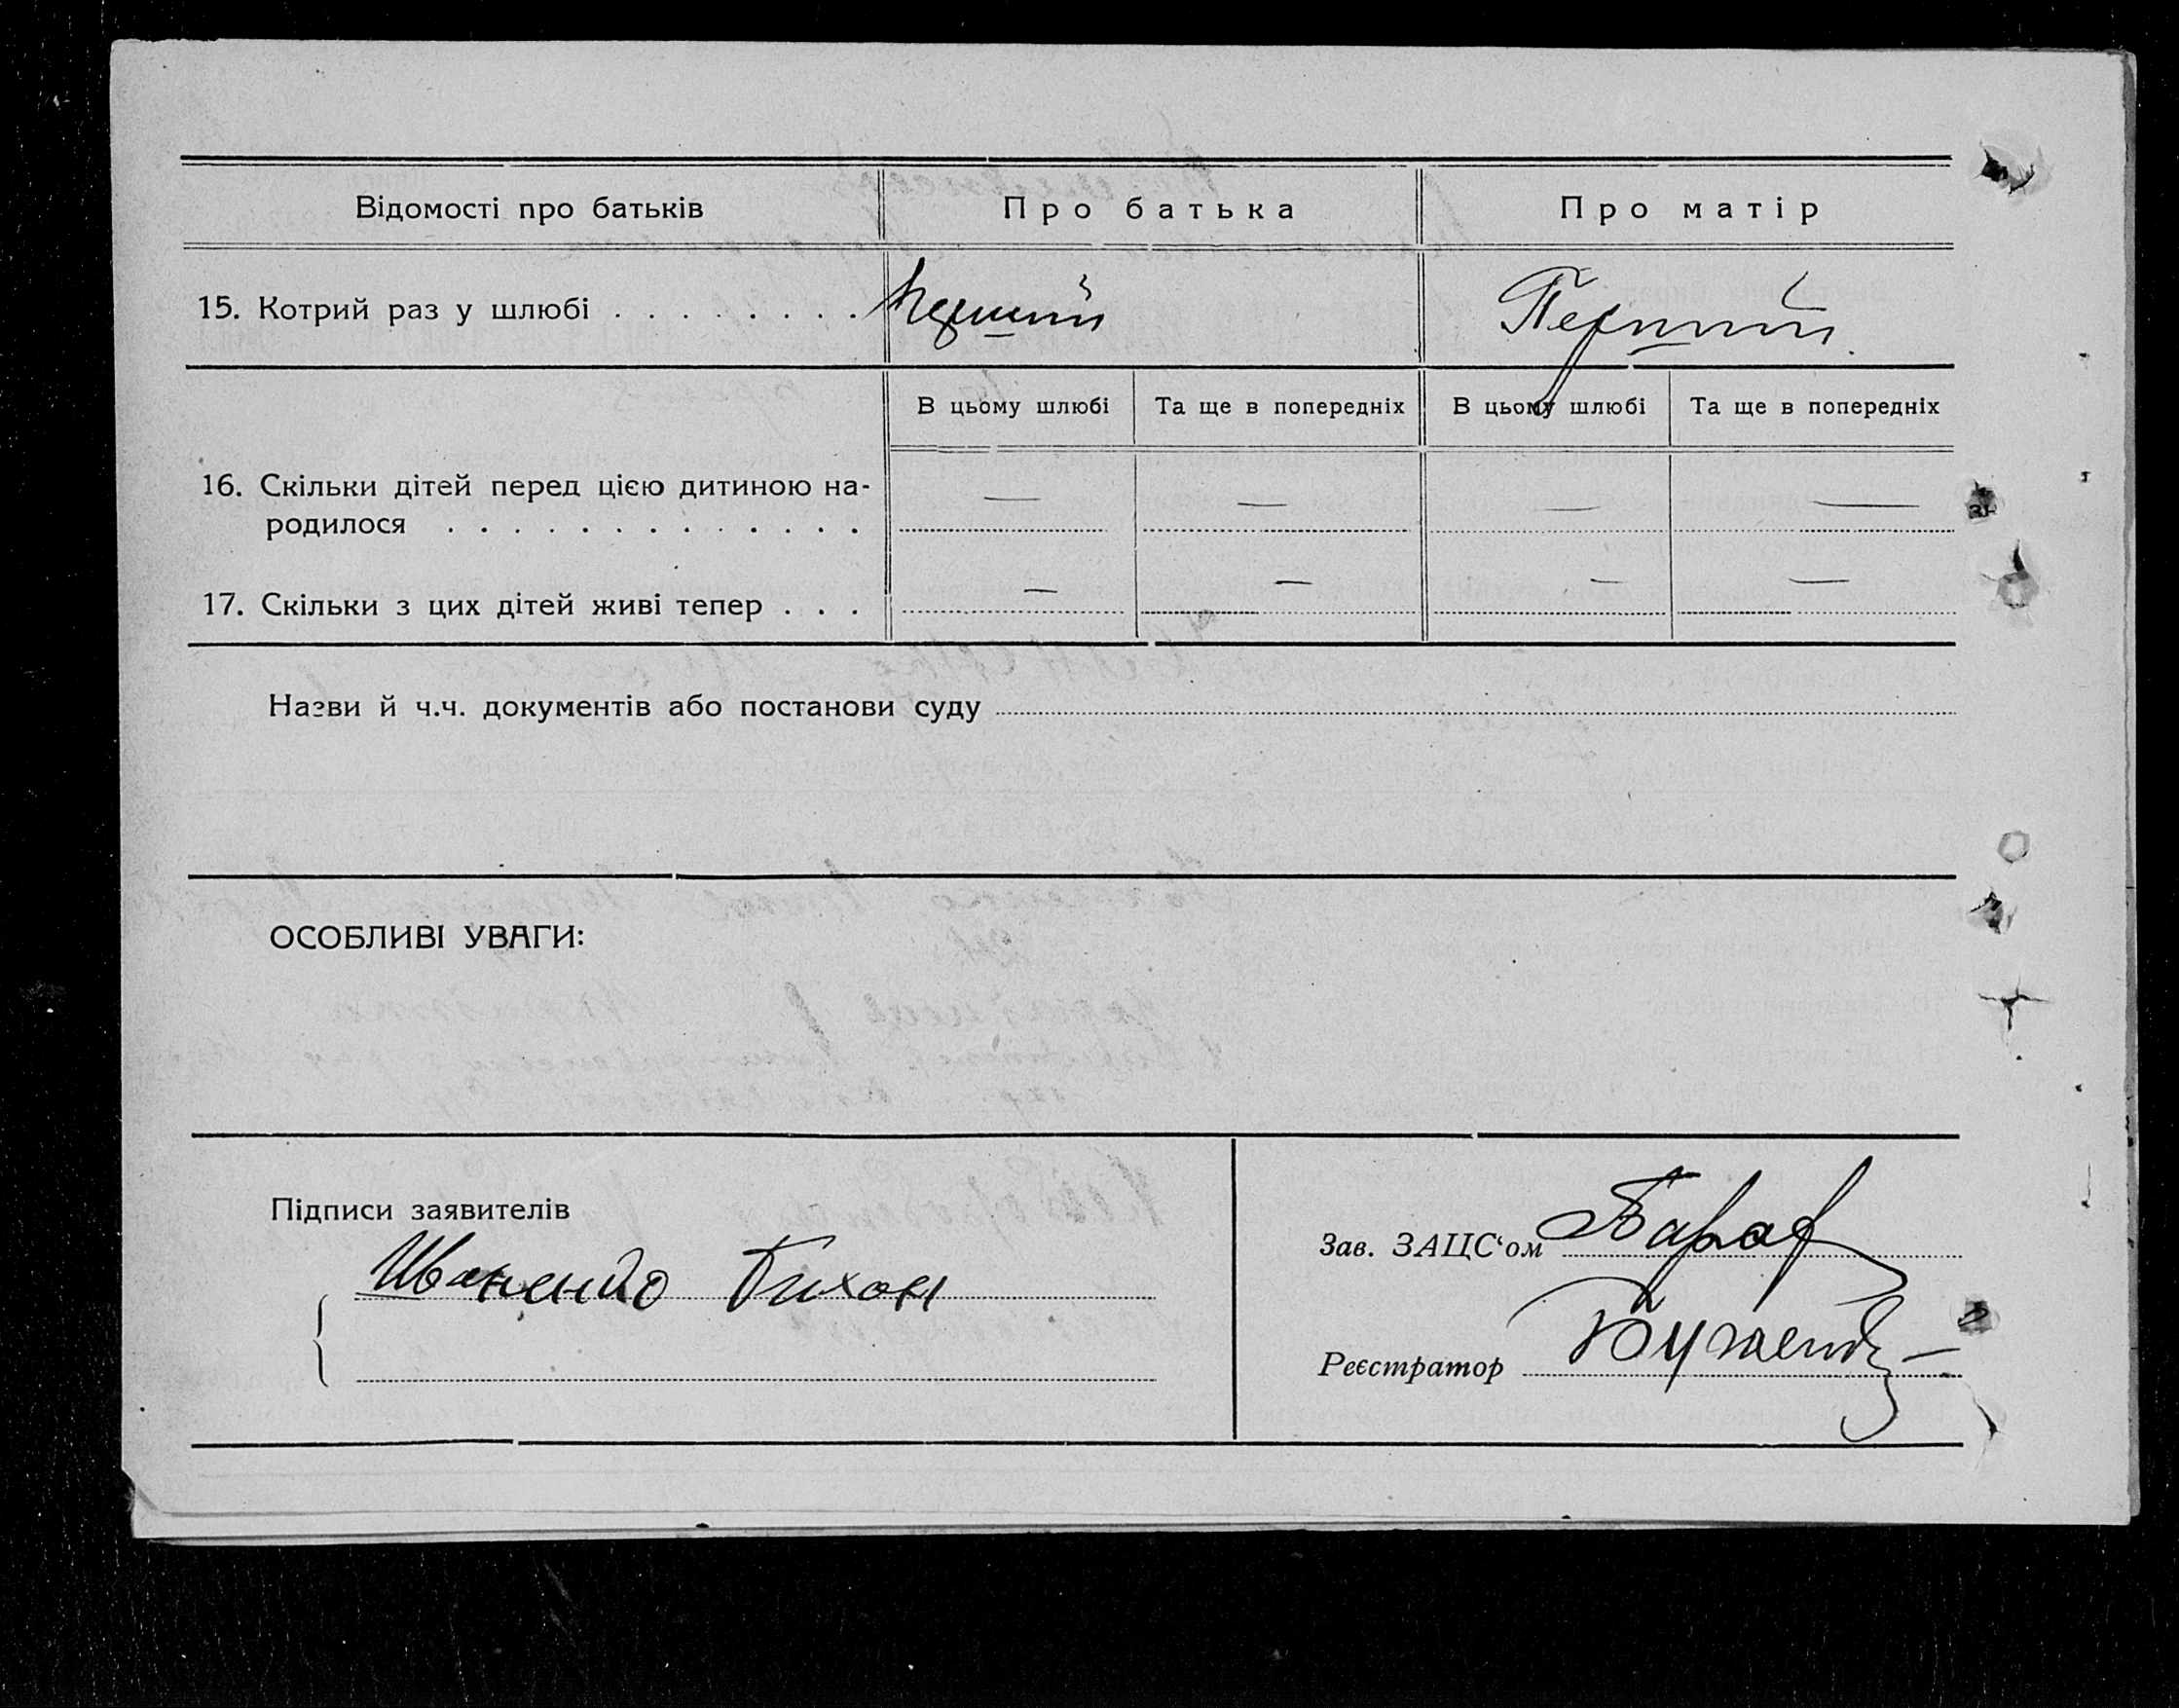 Відомості про батьків Про батька Про матір
15. Котрий раз у шлюбі . . . . . . . . Перший Перший
В цьому шлюбі Та ще в попередніх В цьому шлюбі Та ще в попередніх
16. Скільки дітей перед цією дитиною на-
родилося . . . . . . . . . . . . . — — — —
17. Скільки з цих дітей живі тепер . . . — — — —
Назви й ч.ч. документів або постанови суду
ОСОБЛИВІ УВАГИ:
Підписи заявителів
Зав. ЗАЦС‘ом
Иваненко Тихон
Реєстратор